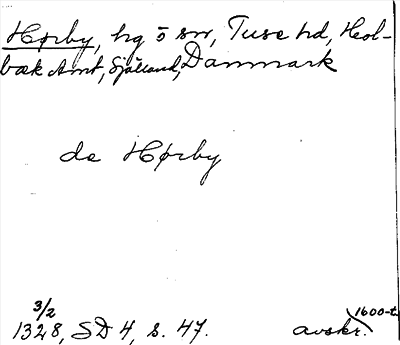 Hørby, hg o sn, Tuse hd, Hol-
bæk Amt, Själland, Danmark
de Hørby
3/2
1328, SD 4, s. 47.
avskr. 1600-t